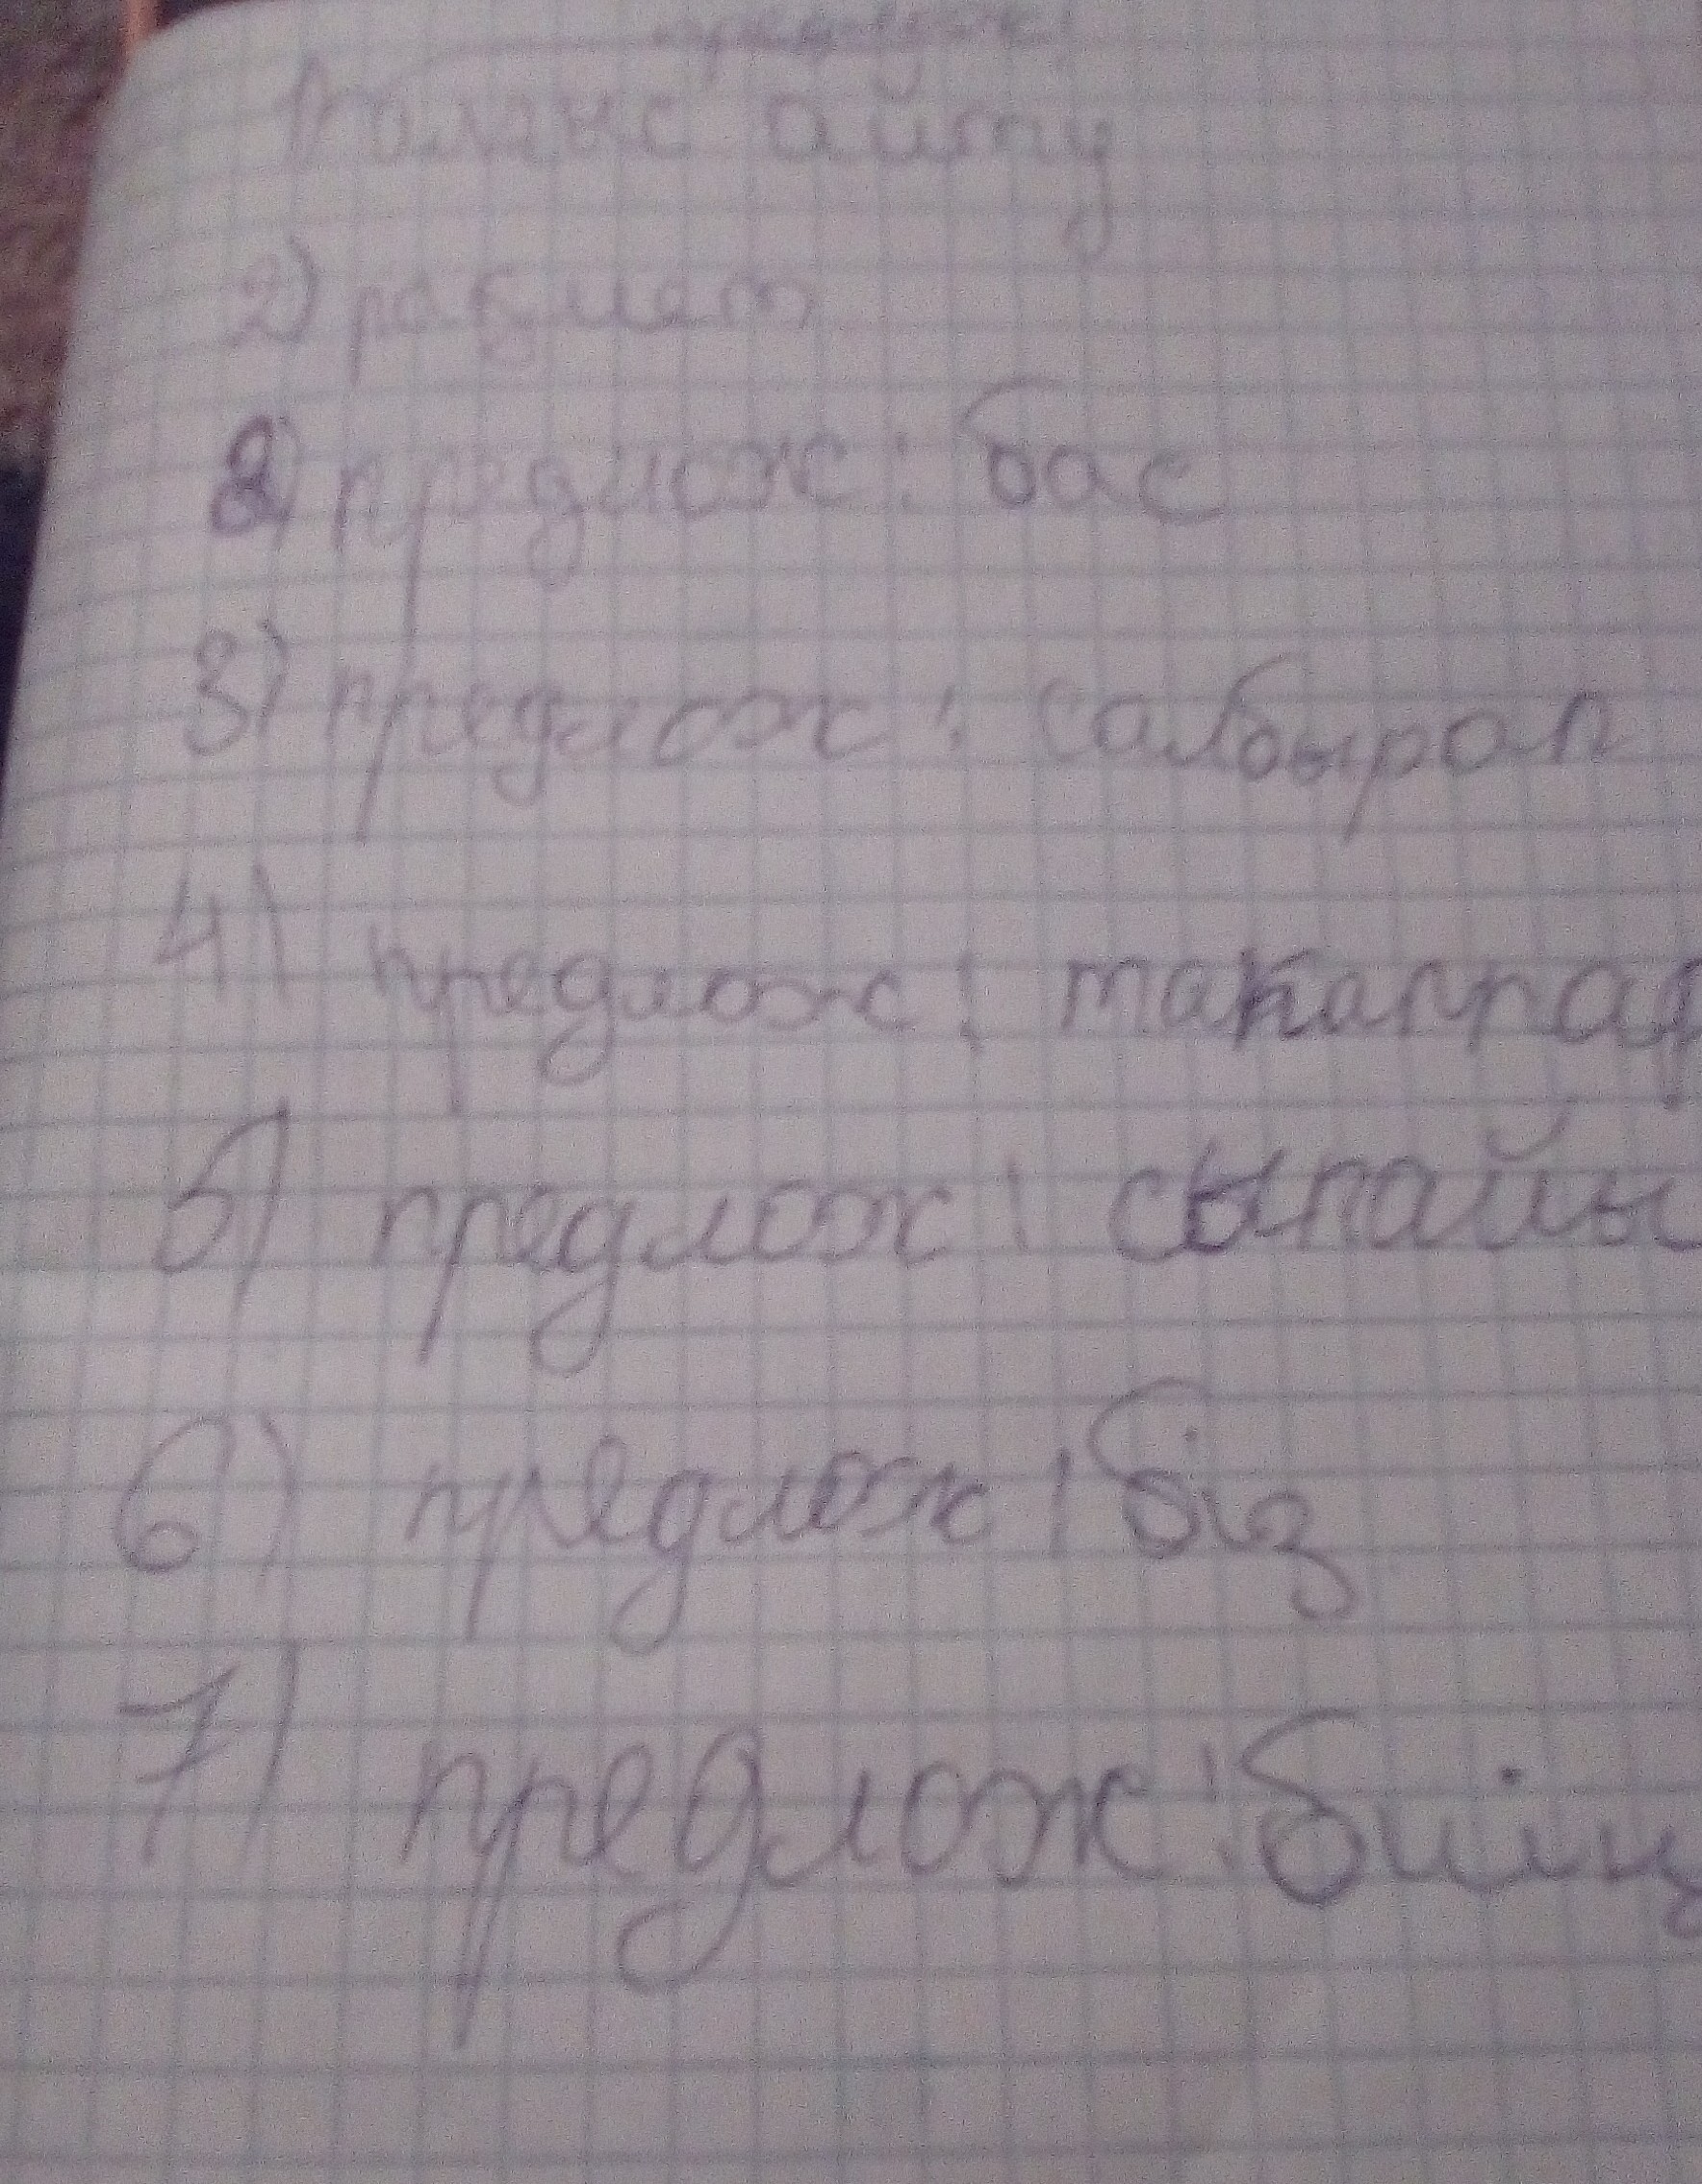 предлож:
1) алғыс айту
2) рақмет
2) предлож: бас
3) предлож: салбырап
4) предлож: такаппар
5) предлож: сыпайы
6) предлож: біз
7) предлож: